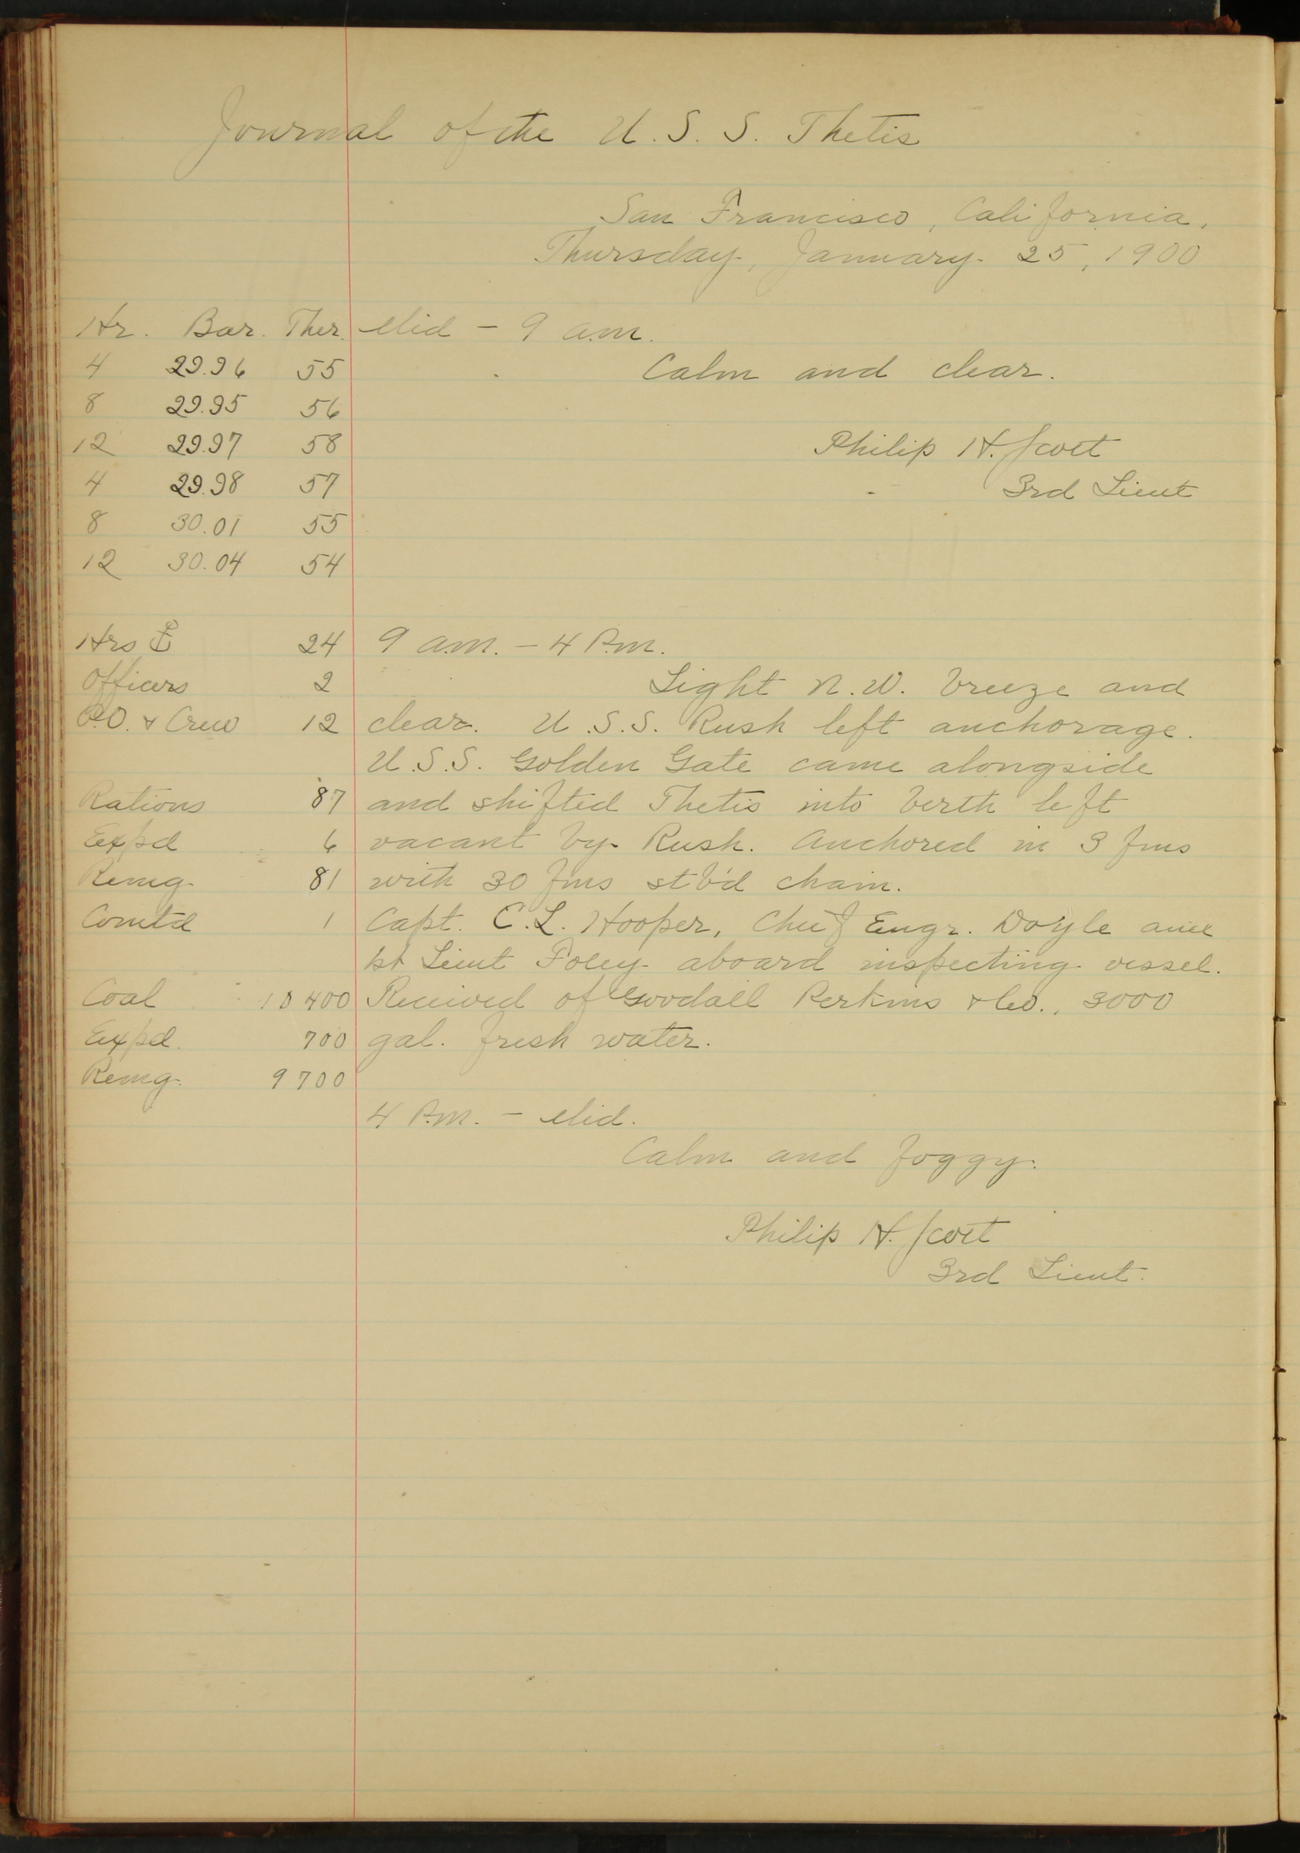 Journal of the U.S.S. Thetis
San Francisco, California,
Thursday, January 25, 1900
Hr. Bar. Ther. Mid – 9 a.m.
4 29.96 55 Calm and clear.
8 29.95 56
12 29.97 58 Philip H. Scott
4 29.98 57 3rd Lieut
8 30.01 55
12 30.04 54
Hrs ⚓ 24 9 a.m. – 4 P.m.
Officers 2 Light N.W. breeze and
P.O. & Crew 12 clear. U.S.S. Rush left anchorage.
U.S.S. Golden Gate came alongside
Rations 87 and shifted Thetis into berth left
Exp'd 6 vacant by Rush. Anchored in 3 fms
Remg. 81 with 30 fms stb'd chain.
Comtd 1 Capt. C.L. Hooper, Chief Engr. Doyle and
1st Lieut Foley aboard inspecting vessel.
Coal 10400 Received of Goodall Perkins & Co., 3000
Exp'd. 700 gal. fresh water.
Remg. 9700
4 P.m. – Mid.
Calm and foggy.
Philip H. Scott
3rd Lieut.